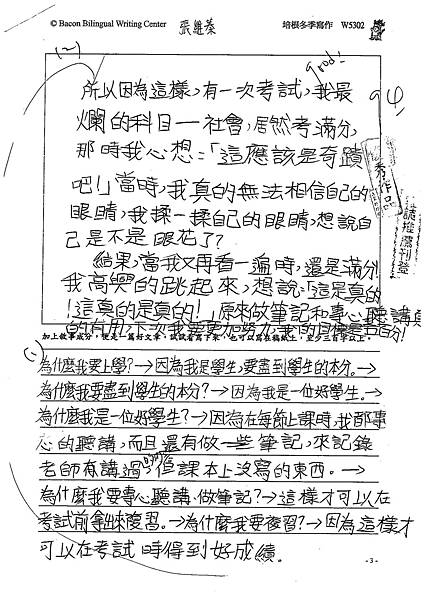 © Bacon Bilingual Writing Center 張進蓁 培根冬季寫作 W5302
(二)
good!
94
所以因為這樣,有一次考試,我最
爛的科目—社會,居然考滿分,
那時我心想:「這應該是奇蹟
吧!」當時,我真的無法相信自己的
眼睛,我揉一揉自己的眼睛,想說自
己是不是眼花了?
結果,當我又再看一遍時,還是滿分!
我高興的跳起來,想說:「這是真的
!這真的是真的!」原來做筆記和專心聽講真
的有用,下次我要更加努力,我的目標是五百分!
秀作品
請推薦刊登
加上敘事成分,便是一篇好文章,試試看寫下來,也可以寫在稿紙上,至少三百字以上。
(一)
為什麼我要上學?→因為我是學生,要盡到學生的本分。→
為什麼我要盡到學生的本分?→因為我是一位好學生。→
為什麼我是一位好學生?→因為在每節上課時,我都專
心的聽講,而且還有做一些筆記,來記錄
老師有講過的,但課本上沒寫的東西。→
為什麼我要專心聽講、做筆記?→這樣才可以在
考試前拿出來複習。→為什麼我要複習?→因為這樣才
可以在考試時得到好成績。
-3-